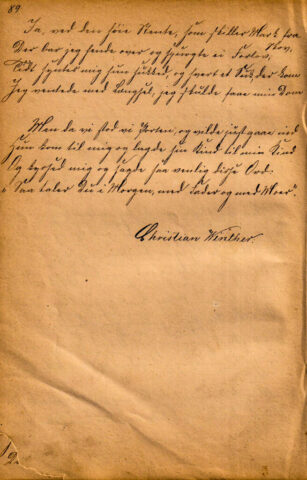 89.
Ja, ved den høie Stente, som skiller Mark fra
Skov,
Der bar jeg hende over og spurgte ei Forlov,
Lidt syntes mig hun sukked, og hvert et Suk der kom
Jeg ventede med Længsel, jeg skulde faae min Dom
Men da vi stod i Porten, og vilde just gaae ind
Hun kom til mig og lagde sin Kind til min Kind
Og kyssed mig og sagde saa venlig disse Ord.
"Saa taler Du i Morgen, med Fader og med Moer."
Christian Winther.